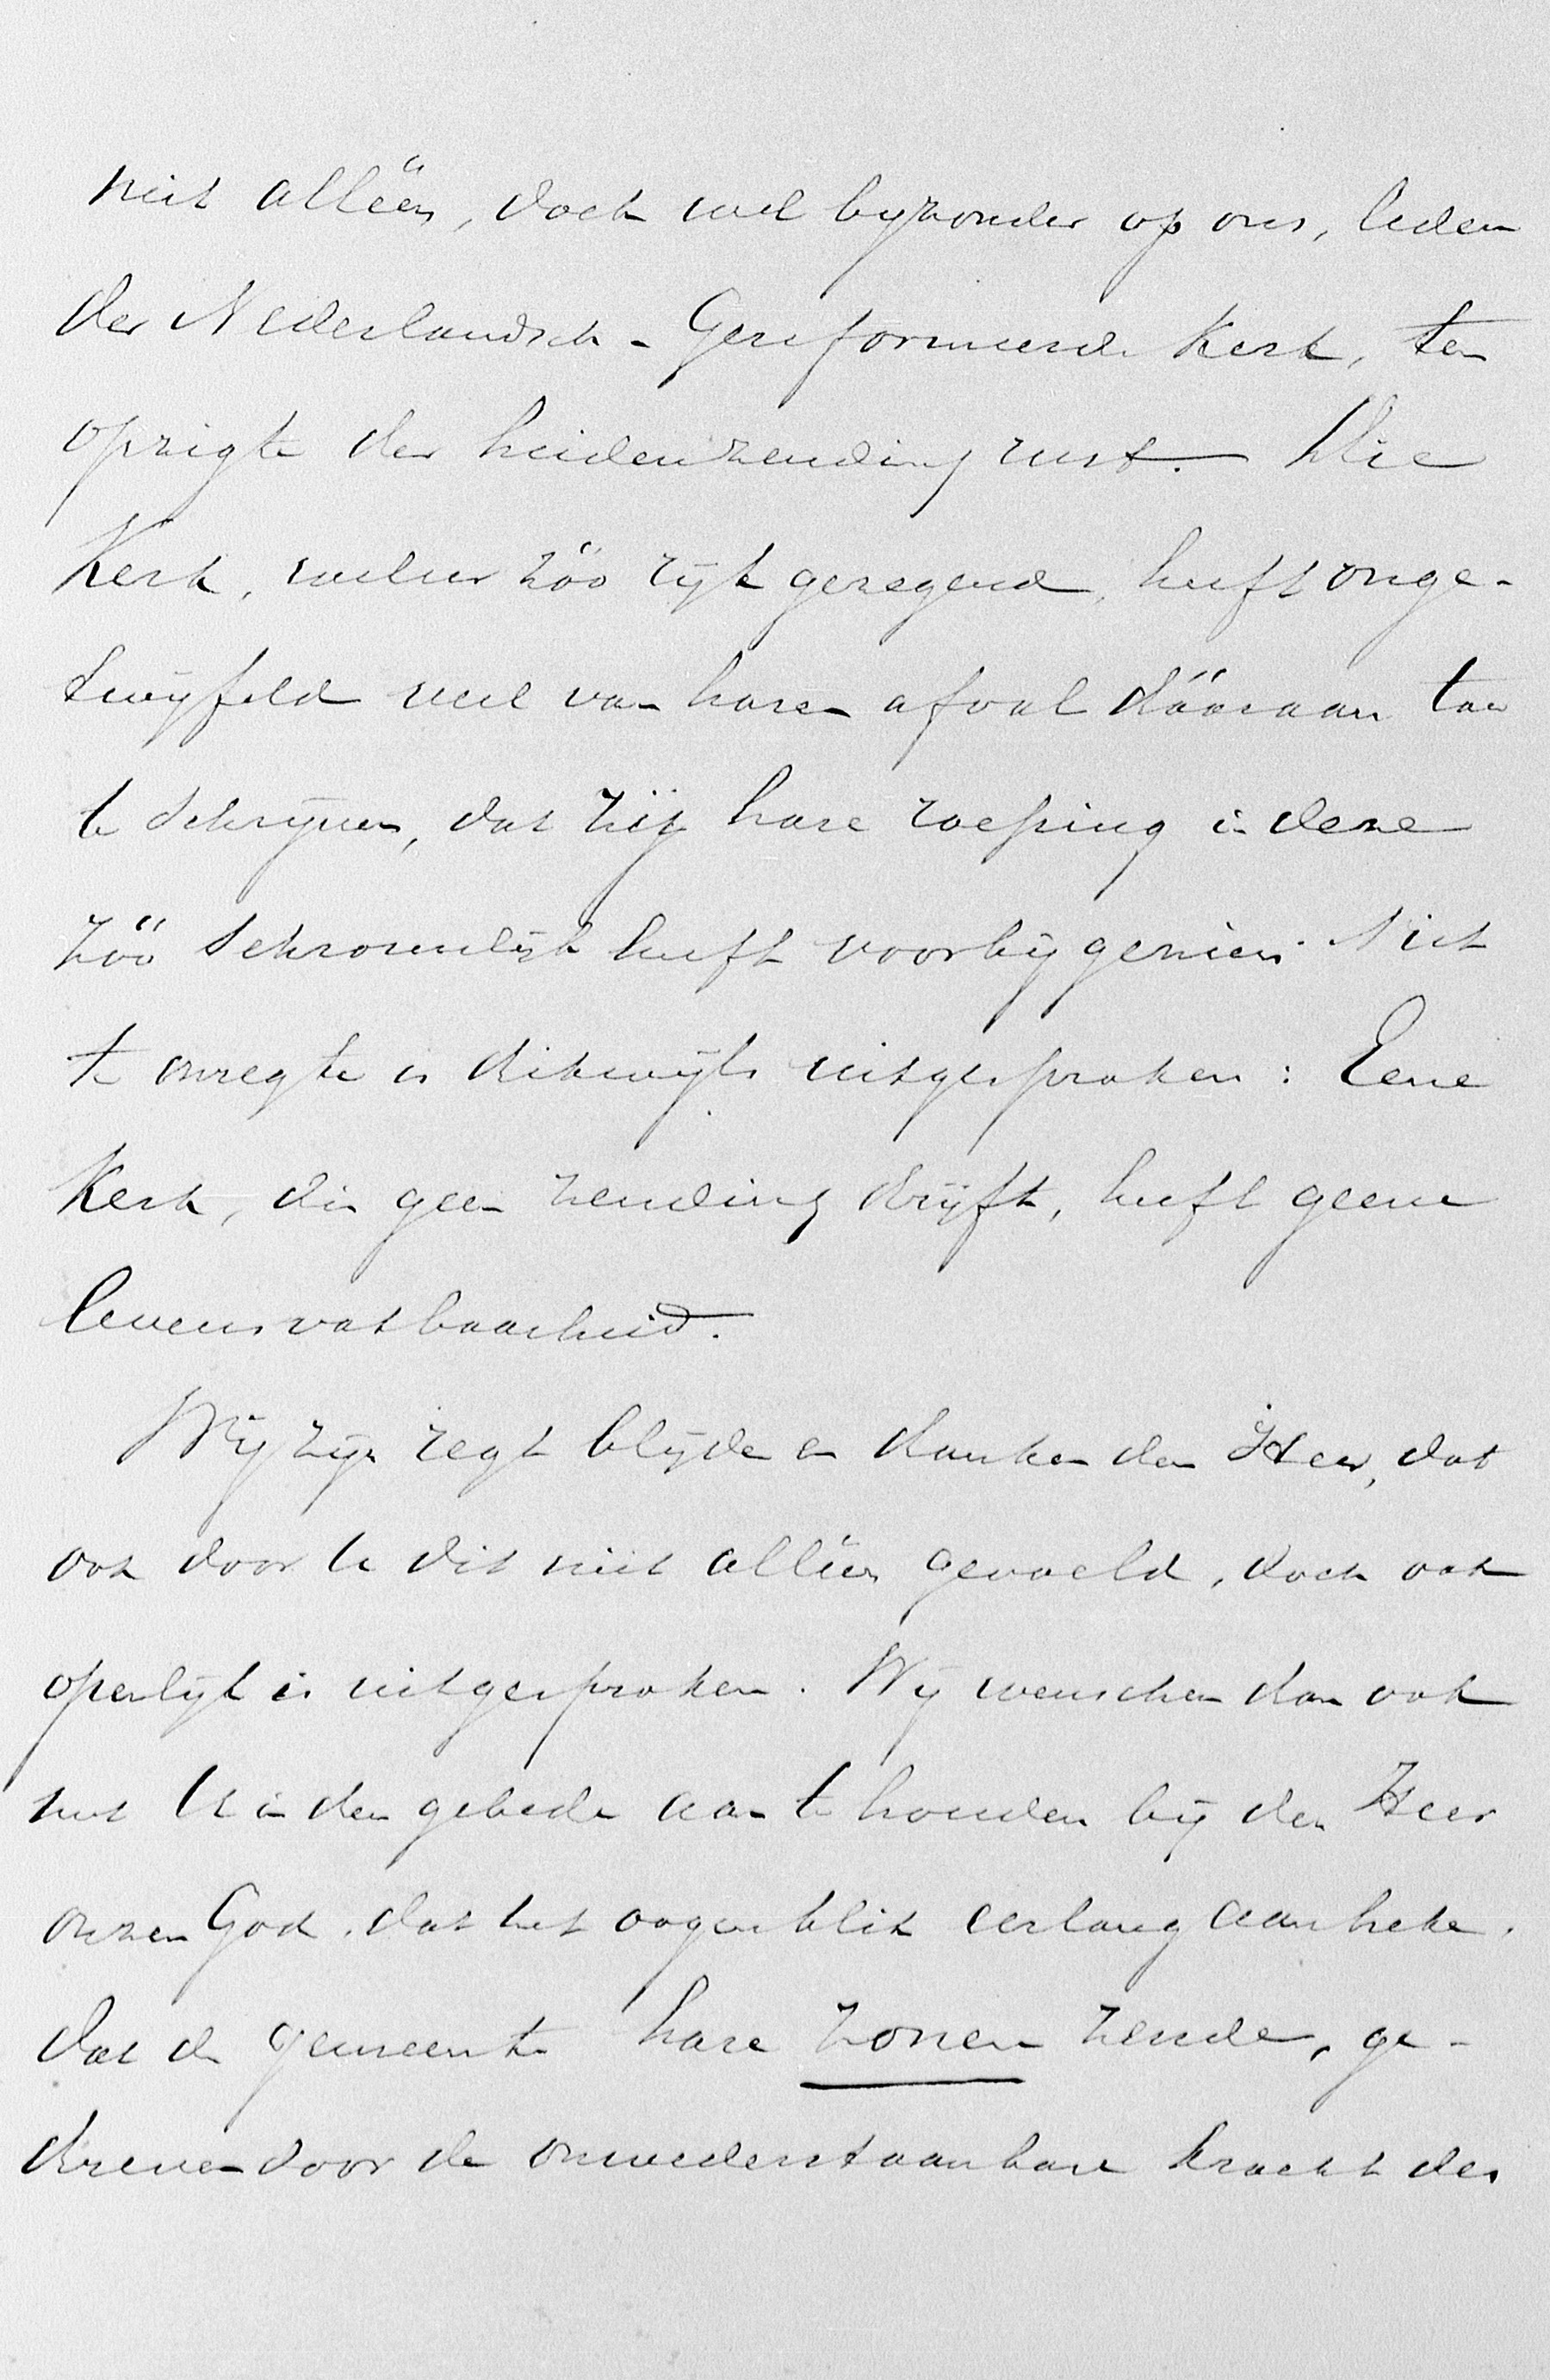 niet alléén, doch wel byzonder op ons, leden
der Nederlandsch-Gereformeerde Kerk, ten
opzigte der heidenzending rust. – Die
Kerk, weleer zóó rijk gezegend, heeft onge-
twijfeld veel van haren afval dááraan toe
te schrijven, dat zij hare roeping in deze
zóó schromelijk heeft voorbijgezien. Niet
te onregte is dikwijls uitgesproken: Eene
Kerk, die geen zending drijft, heeft geene
levensvatbaarheid.
Wij zijn regt blijde en danken den Heer, dat
ook door U dit niet alléén gevoeld, doch ook
openlijk is uitgesproken. Wij wenschen dan ook
met U in den gebede aan te houden bij den Heer
onzen God, dat het oogenblik eerlang aanbreke,
dat de gemeente hare zonen zende, ge-
dreven door de onwederstaanbare kracht der